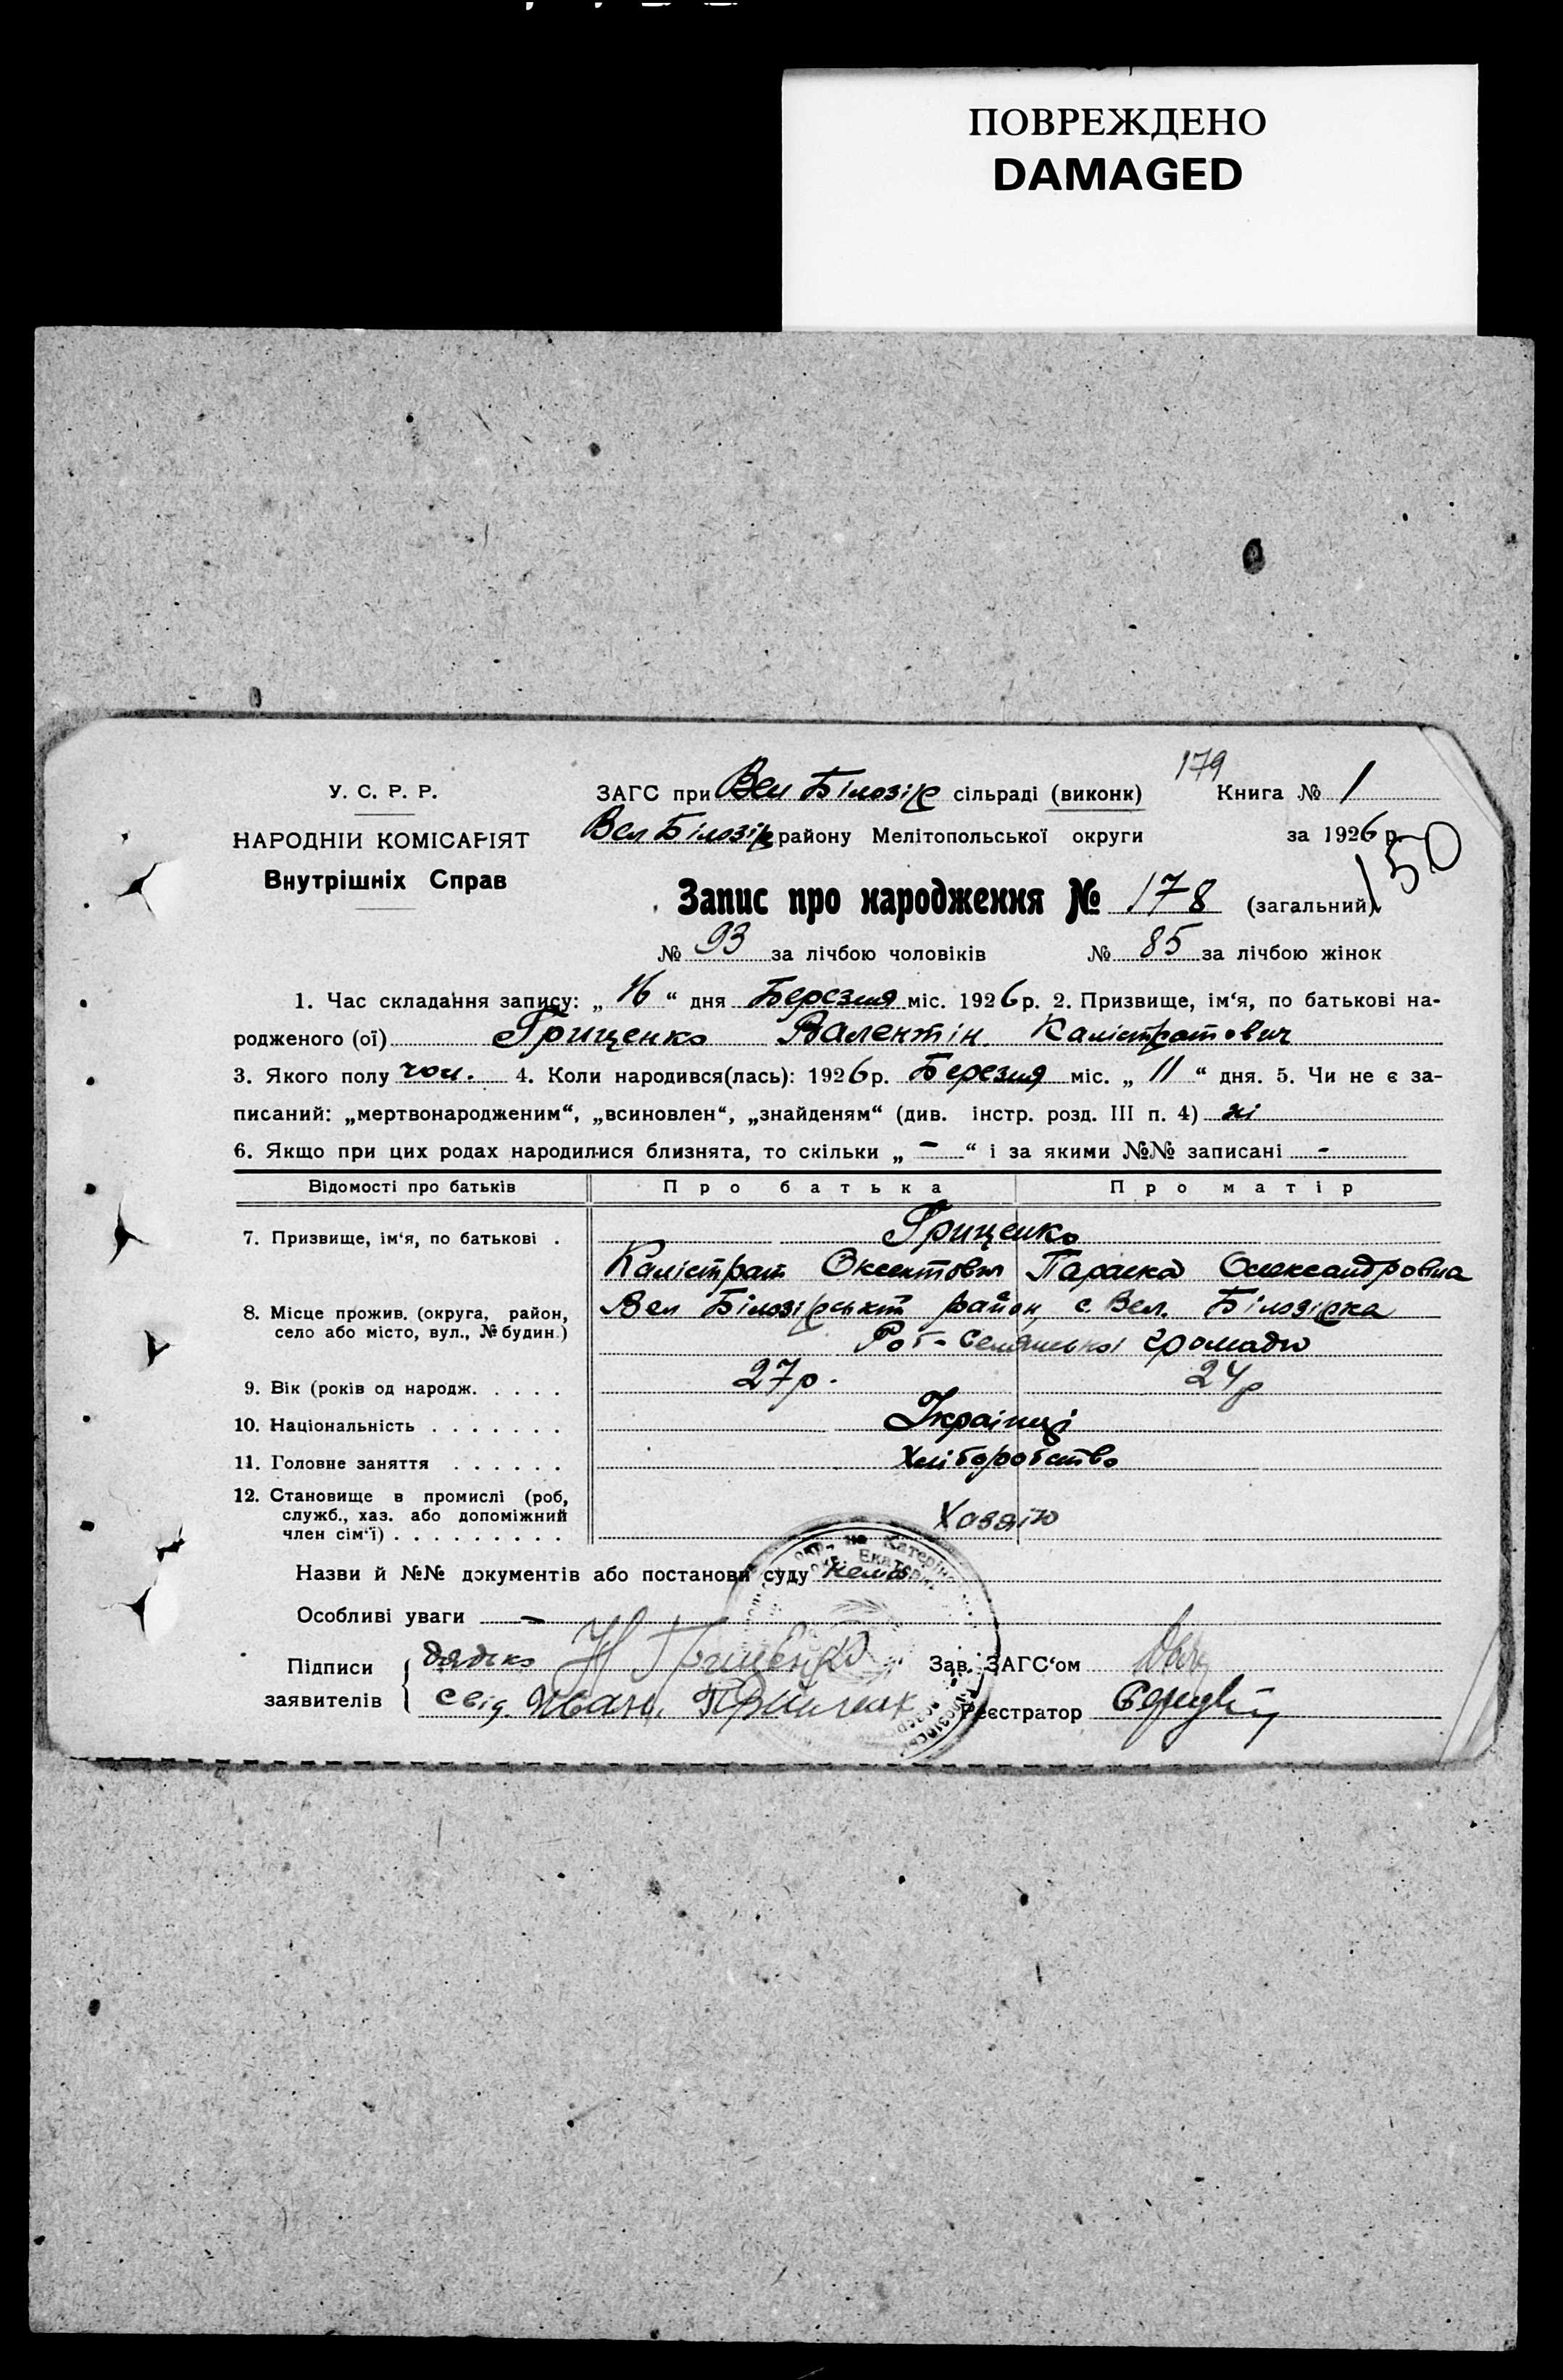 ПОВРЕЖДЕНО
DAMAGED
179
У. С. Р. Р.
ЗАГС при Вел Білозір сільраді (виконк)
Книга № 1
НАРОДНІЙ КОМІСАРІЯТ
Вел Білозір району Мелітопольської округи
за 1926 р.
150
Внутрішніх Справ
Запис про народження № 178 (загальний)
№ 93 за лічбою чоловіків № 85 за лічбою жінок
1. Час складання запису: „ 16 “ дня Березня міс. 1926 р. 2. Призвище, ім‘я, по батькові на-
родженого (ої) Гриценко Валентін Калістратович
3. Якого полу чол. 4. Коли народився(лась): 1926 р. Березня міс. „ 11 “ дня. 5. Чи не є за-
писаний: „мертвонародженим“, „всиновлен“, „знайденям“ (див. інстр. розд. III п. 4) ні
6. Якщо при цих родах народилися близнята, то скільки „ – “ і за якими №№ записані -
Відомості про батьків Про батька Про матір
7. Призвище, ім‘я, по батькові . Гриценко
Калістрат Параска Олександровна
8. Місце прожив. (округа, район,
село або місто, вул., № будин.)
Вел Білозірський район, с. Вел. Білозірка
Роб- Селянської громади
9. Вік (років од народж. . . . . 27 р. 24 р
10. Національність . . . . . . . Українці
11. Головне заняття . . . . . . Хліборобство
12. Становище в промислі (роб,
служб., хаз. або допоміжний
член сім‘ї) . . . . . . . . . Хазяїн
Назви й №№ документів або постанови суду нема
Особливі уваги –
Підписи
заявителів
дядько Гриценко
свід. Иван
Зав. ЗАГС‘ом
Реєстратор